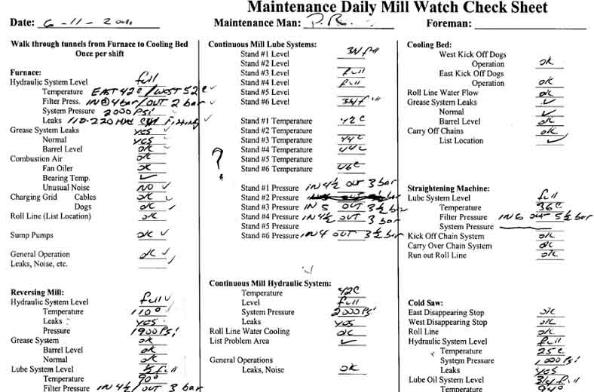 Maintenance Daily Mill Watch Check Sheet
Date: 6-11-2011 Maintenance Man: P.R. Foreman:
Walk through tunnels from Furnace to Cooling Bed
Once per shift
Furnace:
Hydraulic System Level full
Temperature EAST 42c / WEST 52c
Filter Press. IN @ 4 bar / OUT 2 bar
System Pressure 2000 PSI
Leaks
Grease System Leaks yes
Normal yes
Barrel Level ok
Combustion Air ok
Fan Oiler ok
Bearing Temp. ✓
Unusual Noise NO
Charging Grid Cables ok
Dogs ok
Roll Line (List Location) ok
Sump Pumps ok
General Operation ok
Leaks, Noise, etc.
Reversing Mill:
Hydraulic System Level full
Temperature 110°
Leaks yes
Pressure 1900 PSI
Grease System ok
Barrel Level ok
Normal ok
Lube System Level full
Temperature 90°
Filter Pressure IN 4½ / OUT 3 bar
Continuous Mill Lube Systems:
Stand #1 Level 3/4 full
Stand #2 Level
Stand #3 Level full
Stand #4 Level full
Stand #5 Level
Stand #6 Level 3/4 full
Stand #1 Temperature 42c
Stand #2 Temperature
Stand #3 Temperature 44c
Stand #4 Temperature 44c
Stand #5 Temperature
Stand #6 Temperature 46c
?
Stand #1 Pressure IN 4½ OUT 3 bar
Stand #2 Pressure
Stand #3 Pressure IN 5 OUT 3½ bar
Stand #4 Pressure IN 4½ OUT 3 bar
Stand #5 Pressure
Stand #6 Pressure IN 4 OUT 3½ bar
Continuous Mill Hydraulic System:
Temperature 42c
Level full
System Pressure 2000 PSI
Leaks yes
Roll Line Water Cooling ok
List Problem Area ✓
General Operations
Leaks, Noise ok
Cooling Bed:
West Kick Off Dogs
Operation ok
East Kick Off Dogs
Operation ok
Roll Line Water Flow ok
Grease System Leaks ✓
Normal ✓
Barrel Level ok
Carry Off Chains ok
List Location ✓
Straightening Machine:
Lube System Level full
Temperature 36c
Filter Pressure IN 6 OUT 5½ bar
System Pressure
Kick Off Chain System ok
Carry Over Chain System ok
Run out Roll Line ok
Cold Saw:
East Disappearing Stop ok
West Disappearing Stop ok
Roll Line ok
Hydraulic System Level full
Temperature 25c
System Pressure 1000 PSI
Leaks yes
Lube Oil System Level 3/4 full
Temperature